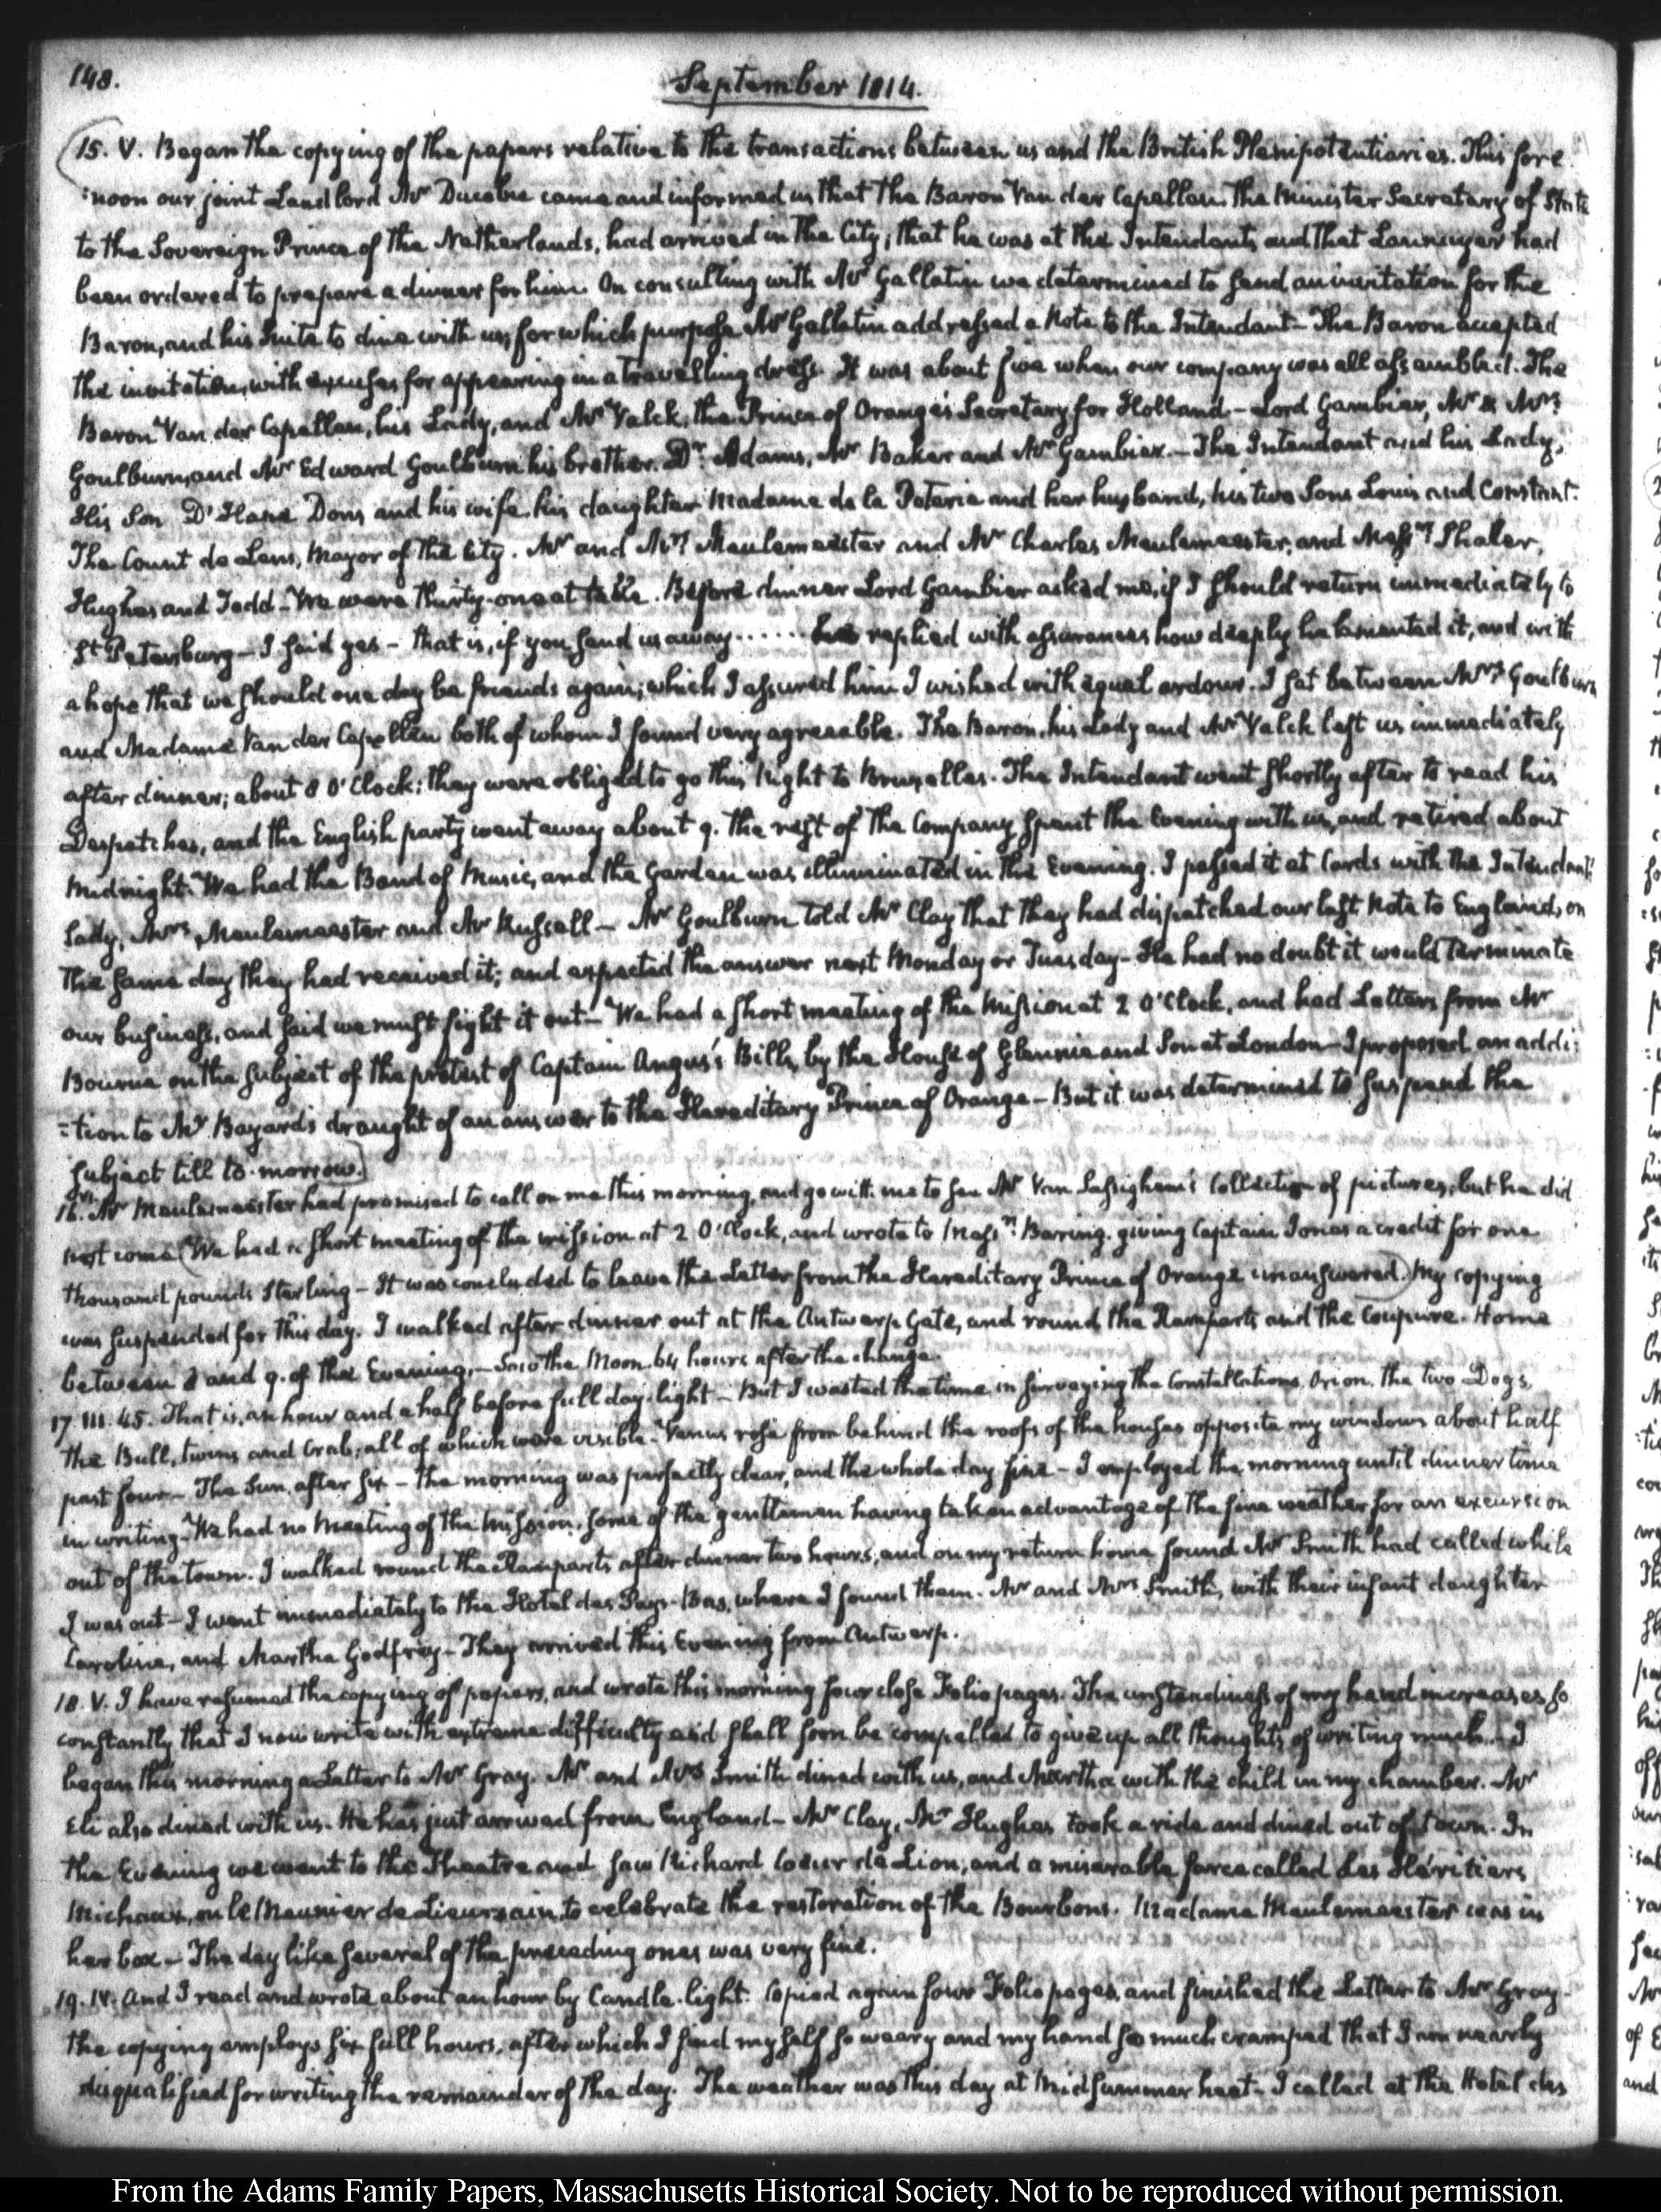 148.
September 1814.
15. V. Began the copying of the papers relative to the transactions between us and the British Plenipotentiaries. This fore
:noon our joint Landlord Mr Ducobie came and informed us that the Baron Van der Capellen the Minister Secretary of State
to the Sovereign Prince of the Netherlands, had arrived in the City; that he was at the Intendant's and that Lannuyer had
been ordered to prepare a dinner for him. On consulting with Mr Gallatin we determined to send an invitation for the
Baron, and his Suite to dine with us, for which purpose Mr Gallatin addressed a Note to the Intendant - The Baron accepted
the invitation, with excuses for appearing in a travelling dress. It was about five when our company was all assembled. The
Baron Van der Capellen, his Lady, and Mr Valck, the Prince of Orange's Secretary for Holland. - Lord Gambier, Mr & Mrs
Goulburn, and Mr Edward Goulburn his brother. Dr Adams, Mr Baker and Mr Gambier. - The Intendant and his Lady,
His Son D'Hane Dons and his wife, his daughter Madame de la Poterie and her husband, his two Sons Louis and Constant.
The Count de Lens, Mayor of the City. Mr and Mrs Meulemeester and Mr Charles Meulemeester, and Messrs Shaler,
Hughes and Todd - We were thirty-one at table. Before dinner Lord Gambier asked me, if I should return immediately to
St Petersburg - I said yes - that is, if you send us away ...... he replied with assurances how deeply he lamented it, and with
a hope that we should one day be friends again; which I assured him I wished with equal ardour. I sat between Mrs Goulburn
and Madame Van der Capellen both of whom I found very agreeable. The Baron, his Lady and Mr Valck left us immediately
after dinner; about 8 O'Clock: they were obliged to go this Night to Bruxelles. The Intendant went shortly after to read his
Despatches, and the English party went away about 9. the rest of the Company spent the Evening with us, and retired about
Midnight. We had the Band of Music, and the Garden was illuminated in the Evening. I passed it at Cards with the Intendant's
Lady, Mrs Meulemeester and Mr Russell - Mr Goulburn told Mr Clay that they had dispatched our last Note to England, on
the same day they had received it; and expected the answer next Monday or Tuesday - He had no doubt it would terminate
our business, and said we must fight it out - We had a short meeting of the Mission at 2 O'Clock, and had Letters from Mr
Bourne on the subject of the protest of Captain Angus's Bills, by the House of Glennie and Son at London - I proposed an addi:
:tion to Mr Bayard's draught of an answer to the Hereditary Prince of Orange - But it was determined to suspend the
subject till to-morrow.
16. VI. Mr Meulemeester had promised to call on me this morning, and go with me to see Mr Van Sassighem's Collection of pictures, but he did
not come. We had a short meeting of the mission at 2 O'Clock, and wrote to Messrs Baring, giving Captain Jones a credit for one
thousand pounds Sterling - It was concluded to leave the Letter from the Hereditary Prince of Orange unanswered. My copying
was suspended for this day. I walked after dinner out at the Antwerp Gate, and round the Ramparts and the Coupure. Home
between 8 and 9. of the Evening. - Saw the Moon 64 hours after the change.
17. III. 45. That is, an hour and a half before full day-light - But I wasted the time in surveying the Constellations, Orion, the two Dogs,
the Bull, twins and Crab; all of which were visible - Venus rose from behind the roofs of the houses opposite my windows about half
past four - The Sun, after six - The morning was perfectly clear, and the whole day fine - I employed the morning until dinner time
in writing - We had no Meeting of the Mission, some of the gentlemen having taken advantage of the fine weather for an excursion
out of the town. I walked round the Ramparts after dinner two hours, and on my return home found Mr Smith had called while
I was out - I went immediately to the Hotel des Pays-Bas, where I found them. Mr and Mrs Smith, with their infant daughter
Caroline, and Martha Godfrey - They arrived this Evening from Antwerp.
18. V. I have resumed the copying of papers, and wrote this morning four close Folio pages. The unsteadiness of my hand increases so
constantly that I now write with extreme difficulty and shall soon be compelled to give up all thoughts of writing much. - I
began this morning a Letter to Mr Gray. Mr and Mrs Smith dined with us, and Martha with the child in my chamber. Mr
Eli also dined with us. He has just arrived from England - Mr Clay, Mr Hughes took a ride and dined out of town. In
the Evening we went to the Theatre and saw Richard Coeur de Lion, and a miserable farce called Les Héritiers
Michaux, ou le Meunier de Lieursain, to celebrate the restoration of the Bourbons. Madame Meulemeester was in
her box - The day like several of the preceding ones was very fine.
19. IV. And I read and wrote about an hour by Candle-light. Copied again four Folio pages, and finished the Letter to Mr Gray -
the copying employs six full hours, after which I find myself so weary and my hand so much cramped that I am nearly
disqualified for writing the remainder of the day. The weather was this day at Midsummer heat - I called at the Hotel des
From the Adams Family Papers, Massachusetts Historical Society. Not to be reproduced without permission.